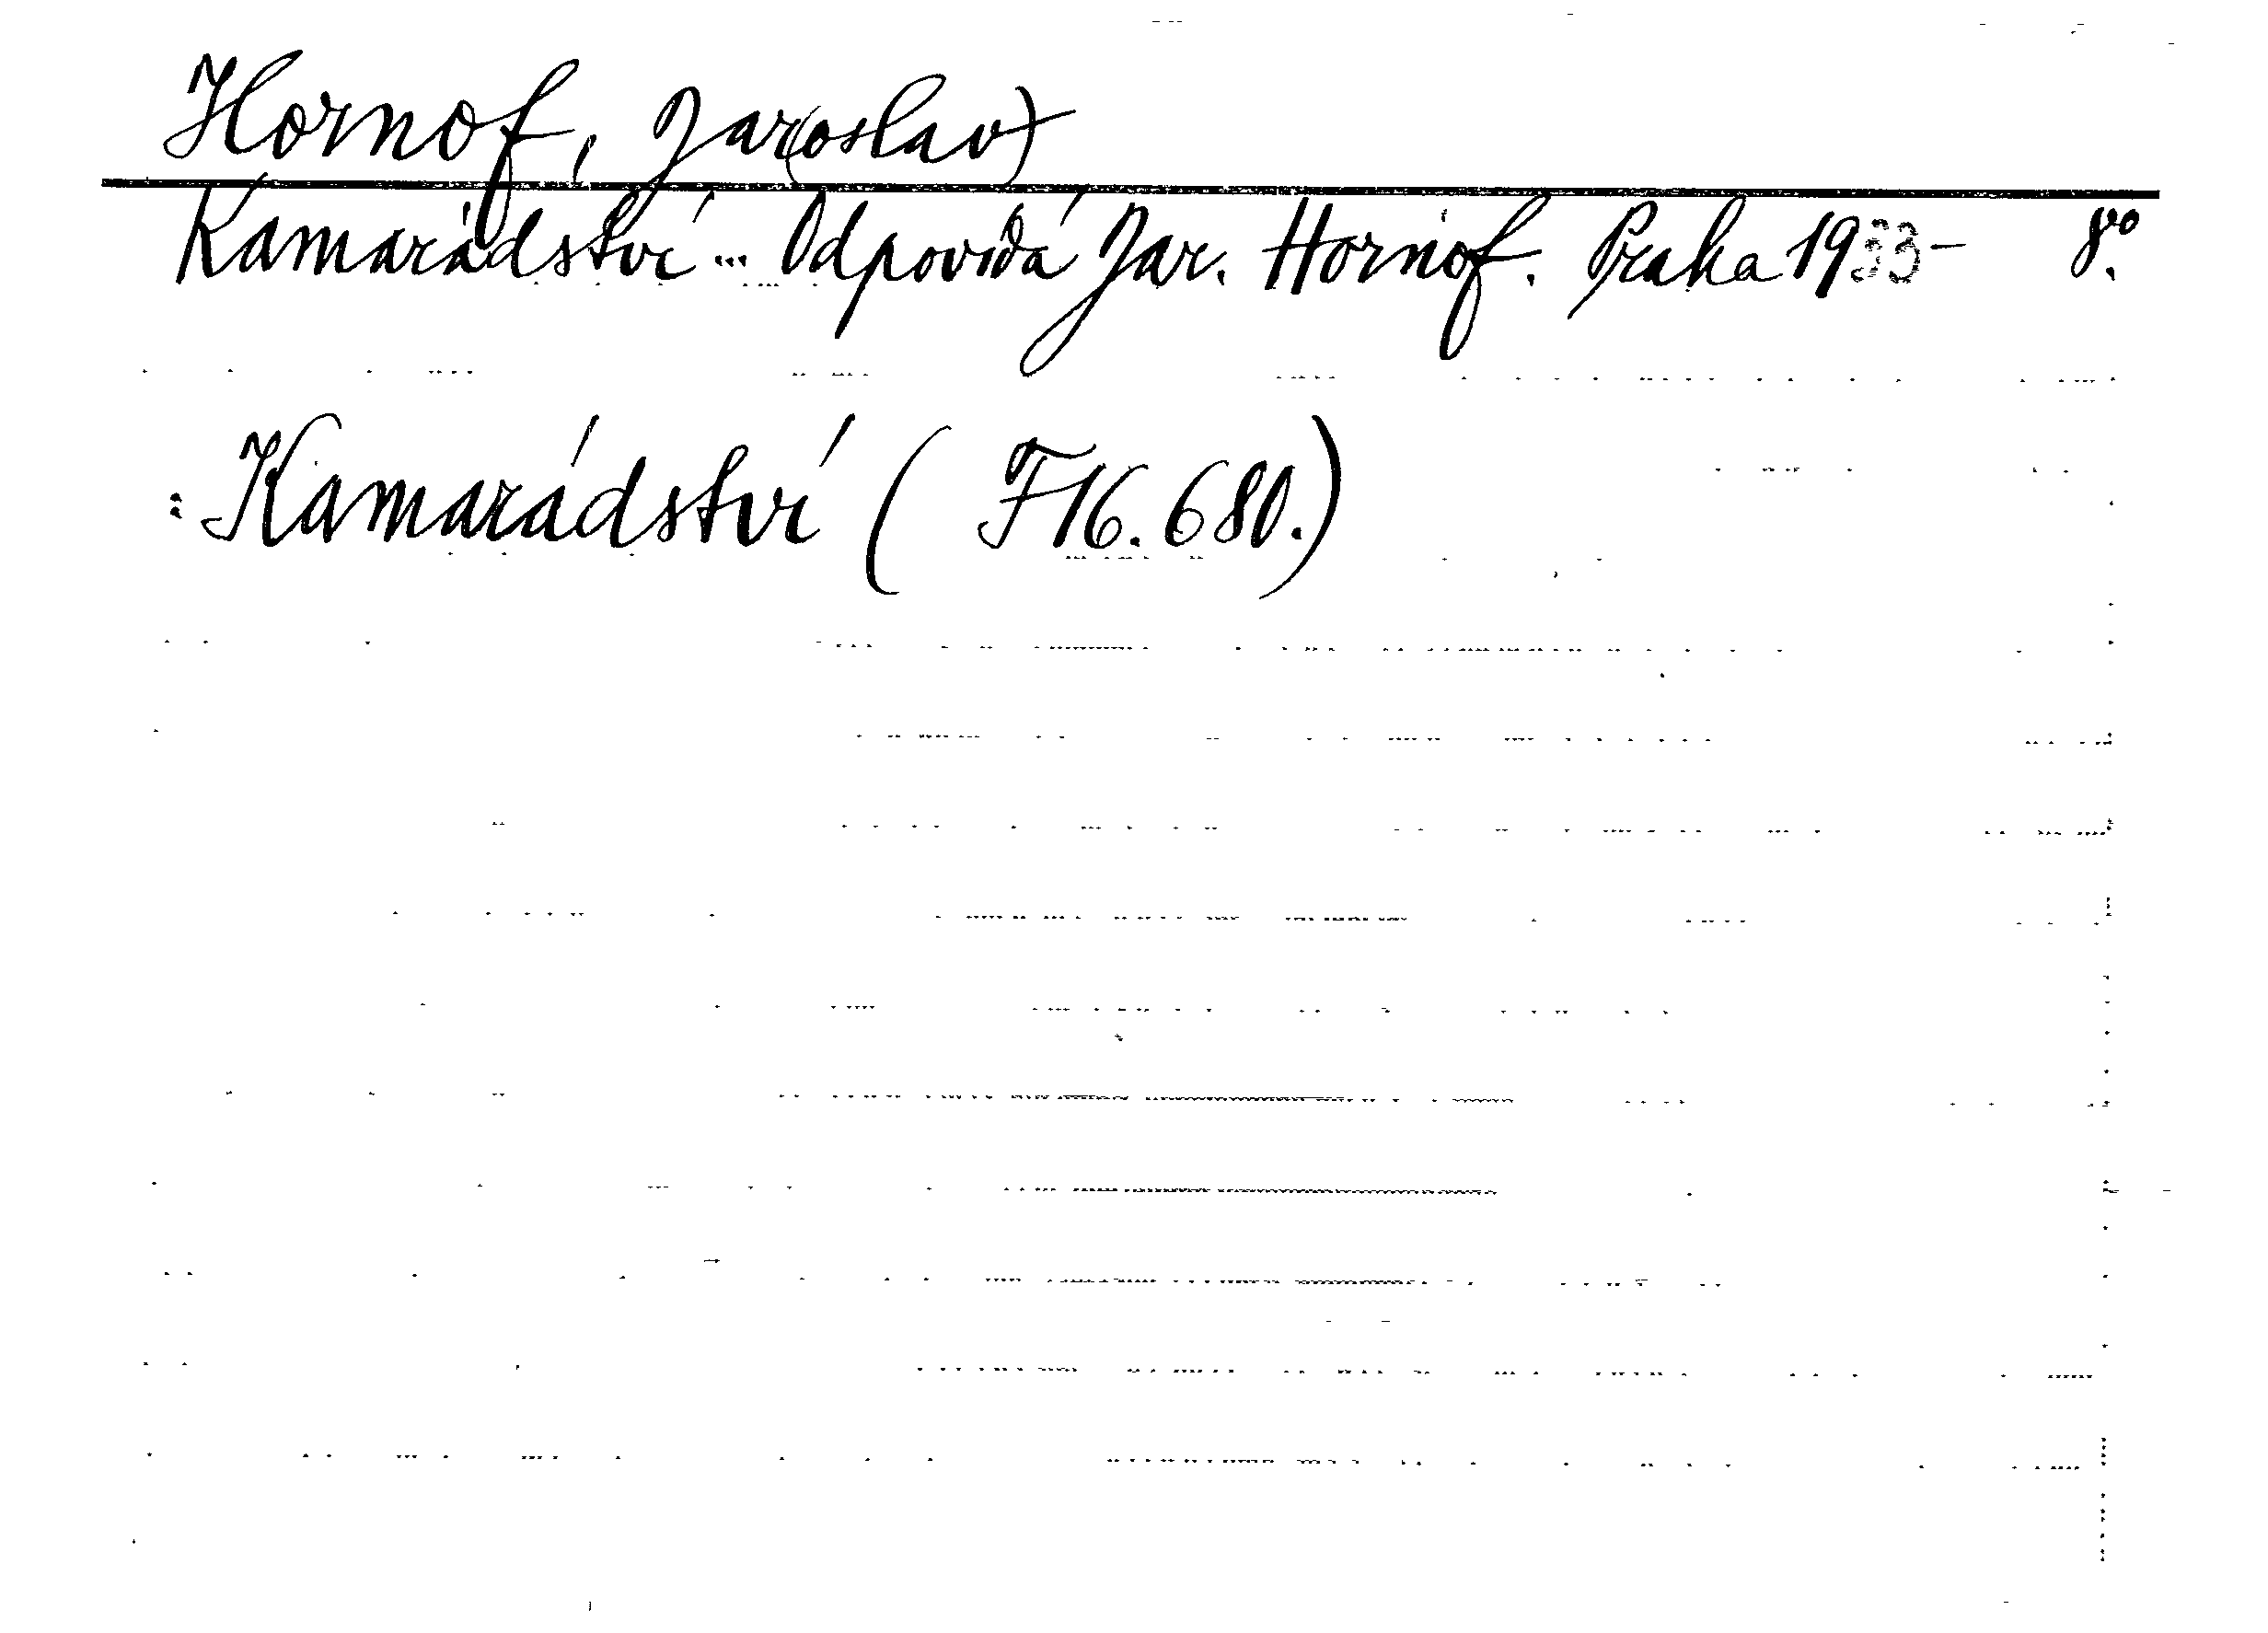 Hornof, Jar(oslav)
Kamarádství ... Odpovídá Jar. Hornof. Praka 1933- 8°.
: Kamarádství ( F 16.680.)